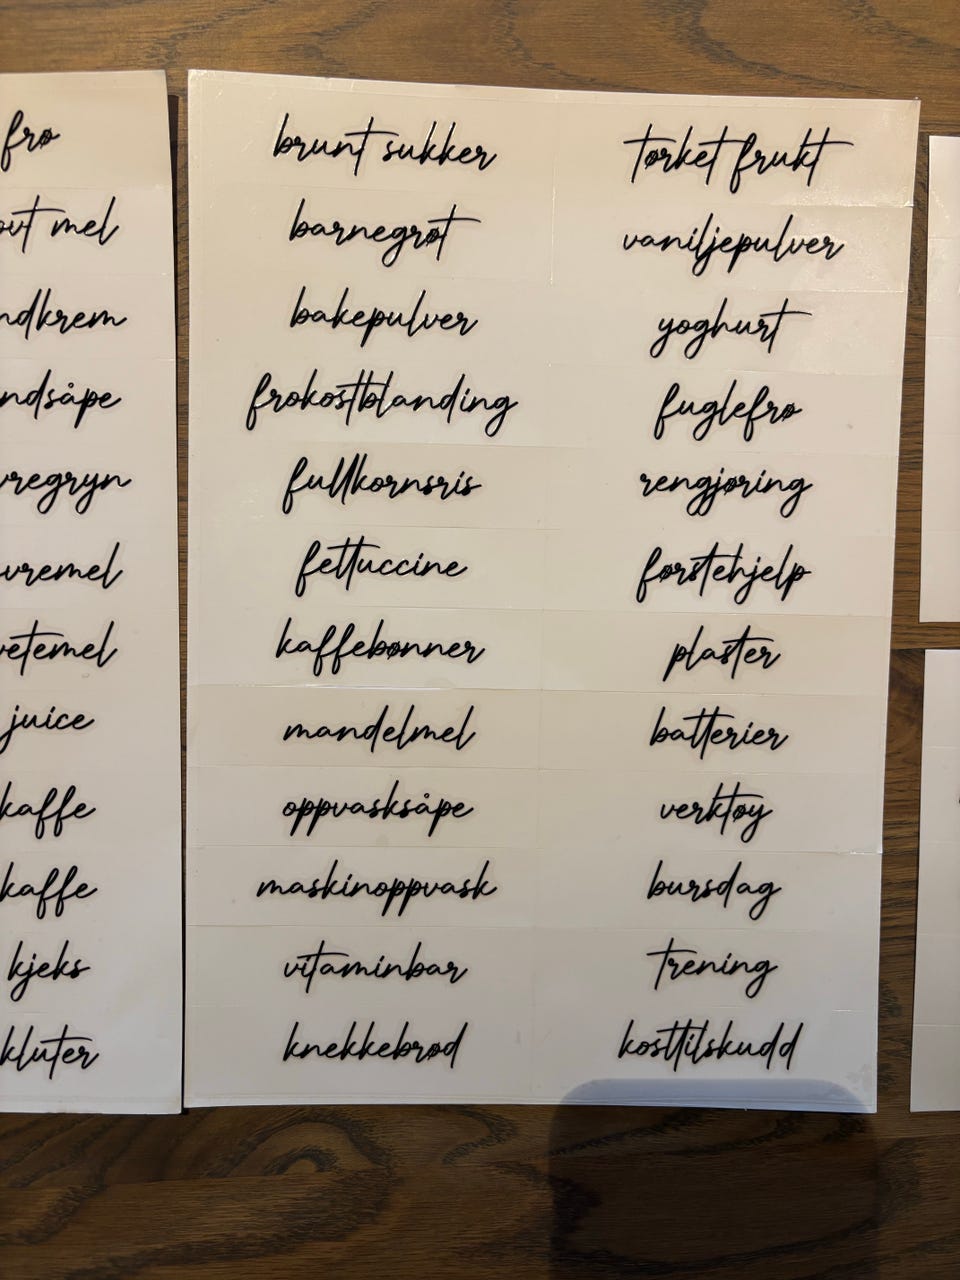 frø
mel
juice
kaffe
kaffe
kjeks
kluter
brunt sukker
barnegrøt
bakepulver
frokostblanding
fullkornsris
fettuccine
kaffebønner
mandelmel
oppvasksåpe
maskinoppvask
vitaminbar
knekkebrød
tørket frukt
vaniljepulver
yoghurt
fuglefrø
rengjøring
førstehjelp
plaster
batterier
verktøy
bursdag
trening
kosttilskudd